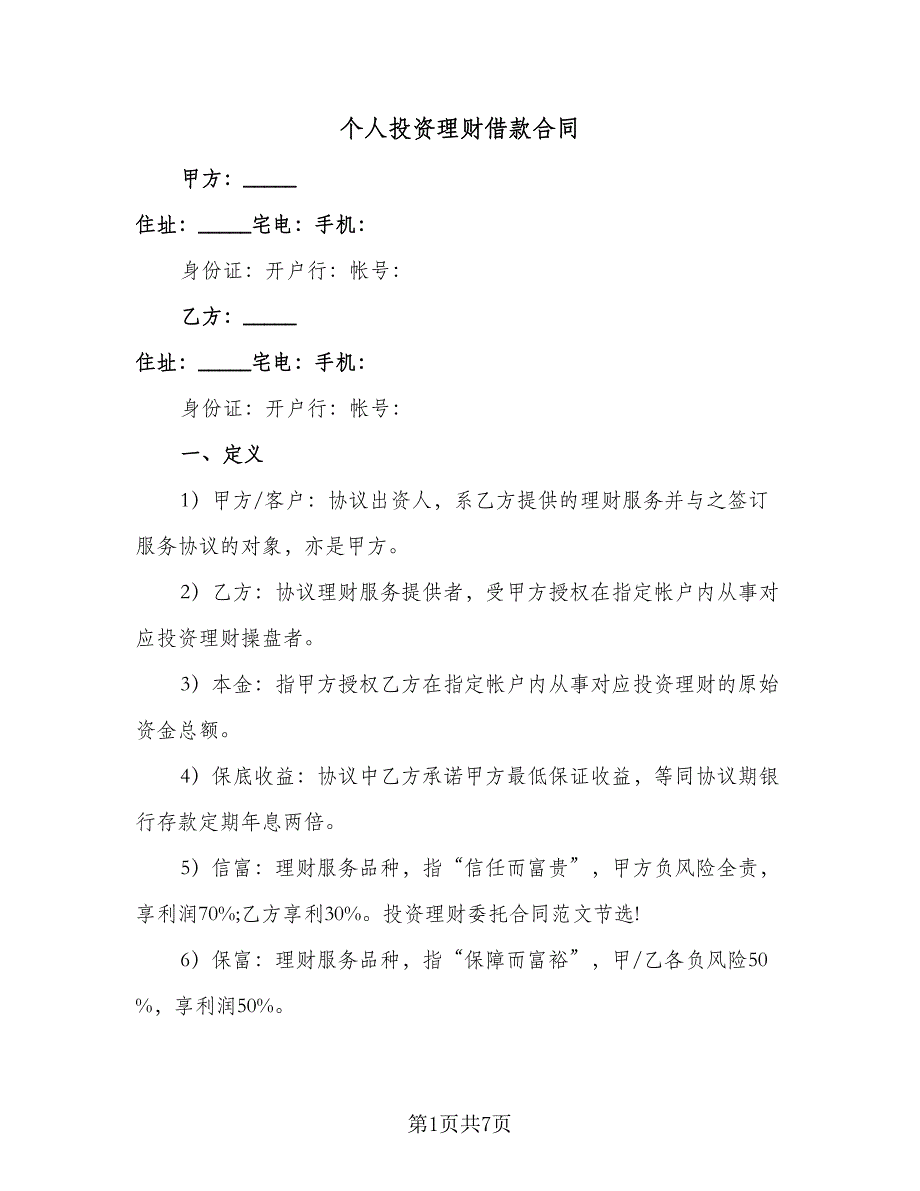 个人投资理财借款合同
甲方：_____
住址：_____宅电：手机：
身份证：开户行：帐号：
乙方：_____
住址：_____宅电：手机：
身份证：开户行：帐号：
一、定义
1）甲方/客户：协议出资人，系乙方提供的理财服务并与之签订
服务协议的对象，亦是甲方。
2）乙方：协议理财服务提供者，受甲方授权在指定帐户内从事对
应投资理财操盘者。
3）本金：指甲方授权乙方在指定帐户内从事对应投资理财的原始
资金总额。
4）保底收益：协议中乙方承诺甲方最低保证收益，等同协议期银
行存款定期年息两倍。
5）信富：理财服务品种，指“信任而富贵”，甲方负风险全责，
享利润70%;乙方享利30%。投资理财委托合同范文节选!
6）保富：理财服务品种，指“保障而富裕”，甲/乙各负风险50
%，享利润50%。
第1页共7页